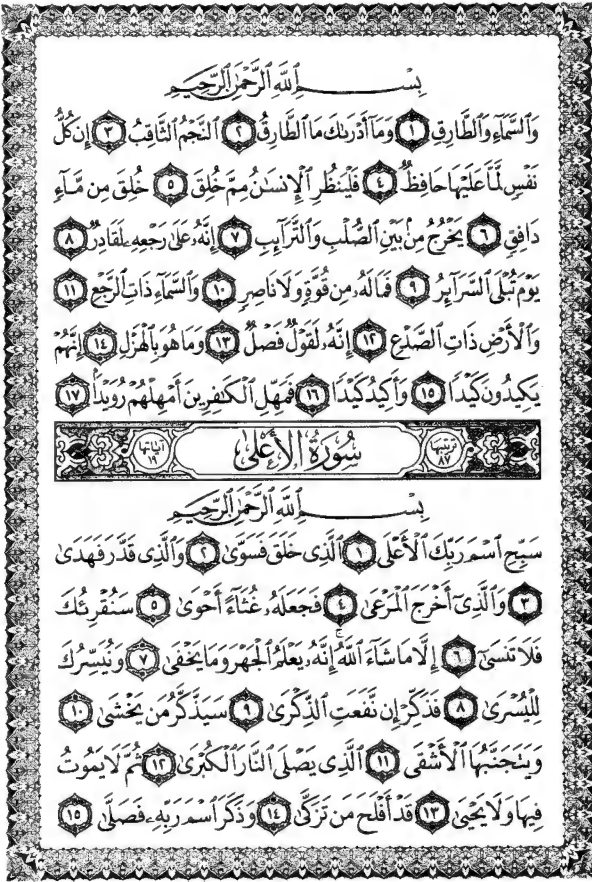 بِسْمِ اللَّهِ الرَّحْمَٰنِ الرَّحِيمِ
وَالسَّمَاءِ وَالطَّارِقِ ١ وَمَا أَدْرَىٰكَ مَا الطَّارِقُ ٢ النَّجْمُ الثَّاقِبُ ٣ إِن كُلُّ
نَفْسٍ لَّمَّا عَلَيْهَا حَافِظٌ ٤ فَلْيَنظُرِ الْإِنسَٰنُ مِمَّ خُلِقَ ٥ خُلِقَ مِن مَّاءٍ
دَافِقٍ ٦ يَخْرُجُ مِنْ بَيْنِ الصُّلْبِ وَالتَّرَائِبِ ٧ إِنَّهُۥ عَلَىٰ رَجْعِهِۦ لَقَادِرٌ ٨
يَوْمَ تُبْلَى السَّرَائِرُ ٩ فَمَا لَهُۥ مِن قُوَّةٍ وَلَا نَاصِرٍ ١٠ وَالسَّمَاءِ ذَاتِ الرَّجْعِ ١١
وَالْأَرْضِ ذَاتِ الصَّدْعِ ١٢ إِنَّهُۥ لَقَوْلٌ فَصْلٌ ١٣ وَمَا هُوَ بِالْهَزْلِ ١٤ إِنَّهُمْ
يَكِيدُونَ كَيْدًا ١٥ وَأَكِيدُ كَيْدًا ١٦ فَمَهِّلِ الْكَٰفِرِينَ أَمْهِلْهُمْ رُوَيْدًا ١٧
ترتيبها ٨٧ سُورَةُ الْأَعْلَىٰ آياتها ١٩
بِسْمِ اللَّهِ الرَّحْمَٰنِ الرَّحِيمِ
سَبِّحِ اسْمَ رَبِّكَ الْأَعْلَى ١ الَّذِي خَلَقَ فَسَوَّىٰ ٢ وَالَّذِي قَدَّرَ فَهَدَىٰ
٣ وَالَّذِي أَخْرَجَ الْمَرْعَىٰ ٤ فَجَعَلَهُۥ غُثَاءً أَحْوَىٰ ٥ سَنُقْرِئُكَ
فَلَا تَنسَىٰ ٦ إِلَّا مَا شَاءَ اللَّهُ ۚ إِنَّهُۥ يَعْلَمُ الْجَهْرَ وَمَا يَخْفَىٰ ٧ وَنُيَسِّرُكَ
لِلْيُسْرَىٰ ٨ فَذَكِّرْ إِن نَّفَعَتِ الذِّكْرَىٰ ٩ سَيَذَّكَّرُ مَن يَخْشَىٰ ١٠
وَيَتَجَنَّبُهَا الْأَشْقَى ١١ الَّذِي يَصْلَى النَّارَ الْكُبْرَىٰ ١٢ ثُمَّ لَا يَمُوتُ
فِيهَا وَلَا يَحْيَىٰ ١٣ قَدْ أَفْلَحَ مَن تَزَكَّىٰ ١٤ وَذَكَرَ اسْمَ رَبِّهِۦ فَصَلَّىٰ ١٥